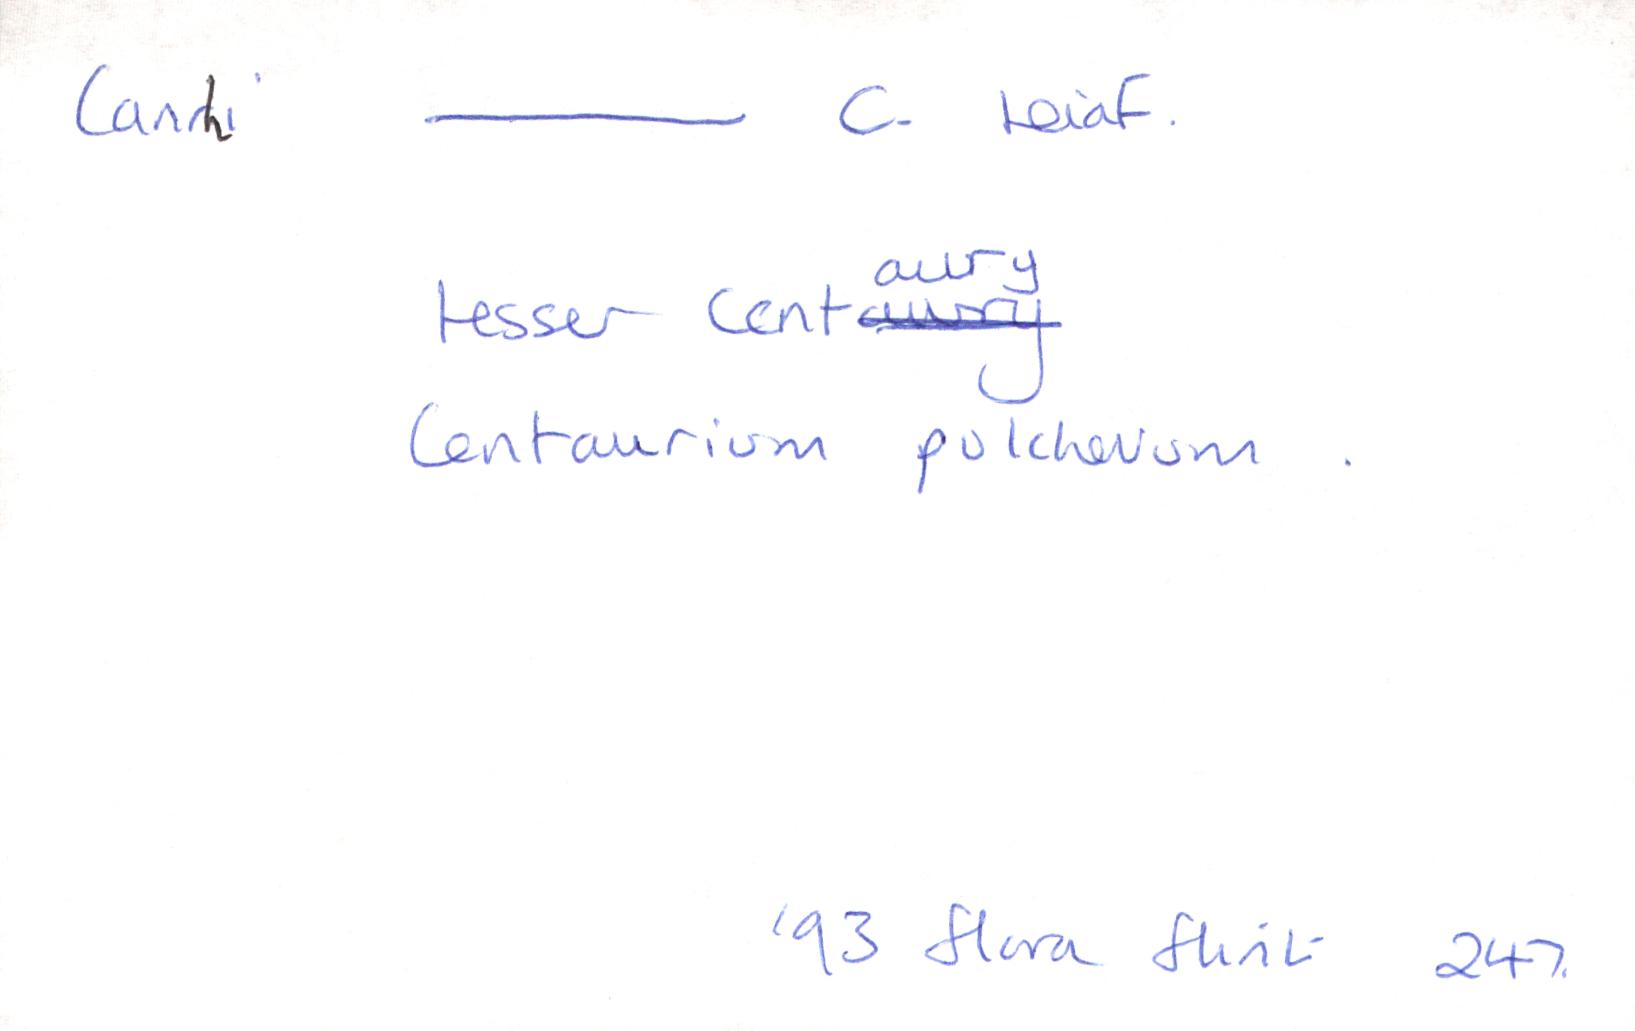 Canrhi ——— C. Leiaf.
Lesser Centaury
Centaurium pulcherum.
'93 Flora Flint 247.